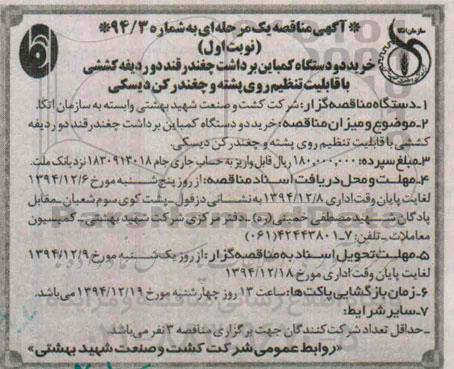 سازمان اتکا
* آگهی مناقصه یک مرحله ای به شماره ۹۴/۳ *
(نوبت اول)
خرید دو دستگاه کمباین برداشت چغندرقند دو ردیفه کششی
با قابلیت تنظیم روی پشته و چغندر کن دیسکی
۱ـ دستگاه مناقصه گزار: شرکت کشت و صنعت شهید بهشتی وابسته به سازمان اتکا.
۲ـ موضوع و میزان مناقصه: خرید دو دستگاه کمباین برداشت چغندرقند دو ردیفه
کششی با قابلیت تنظیم روی پشته و چغندر کن دیسکی.
۳ـ مبلغ سپرده: ۱۸۰,۰۰۰,۰۰۰ ریال قابل واریز به حساب جاری جام ۱۸۳۰۹۱۳۰۱۸ نزد بانک ملت.
۴ـ مهلت و محل دریافت اسناد مناقصه: از روز پنج شنبه مورخ ۱۳۹۴/۱۲/۶
لغایت پایان وقت اداری ۱۳۹۴/۱۲/۸ به نشانی دزفول ـ پشت کوی سوم شعبان ـ مقابل
پادگان شهید مصطفی خمینی (ره) ـ دفتر مرکزی شرکت شهید بهشتی ـ کمیسیون
معاملات ـ تلفن: ۷ـ۴۲۴۴۳۸۰۱ (۰۶۱)
۵ـ مهلت تحویل اسناد به مناقصه گزار: از روز یک شنبه مورخ ۱۳۹۴/۱۲/۹
لغایت پایان وقت اداری مورخ ۱۳۹۴/۱۲/۱۸
۶ـ زمان بازگشایی پاکت ها: ساعت ۱۳ روز چهارشنبه مورخ ۱۳۹۴/۱۲/۱۹ می باشد.
۷ـ سایر شرایط:
ـ حداقل تعداد شرکت کنندگان جهت برگزاری مناقصه ۳ نفر می باشد.
«روابط عمومی شرکت کشت و صنعت شهید بهشتی»